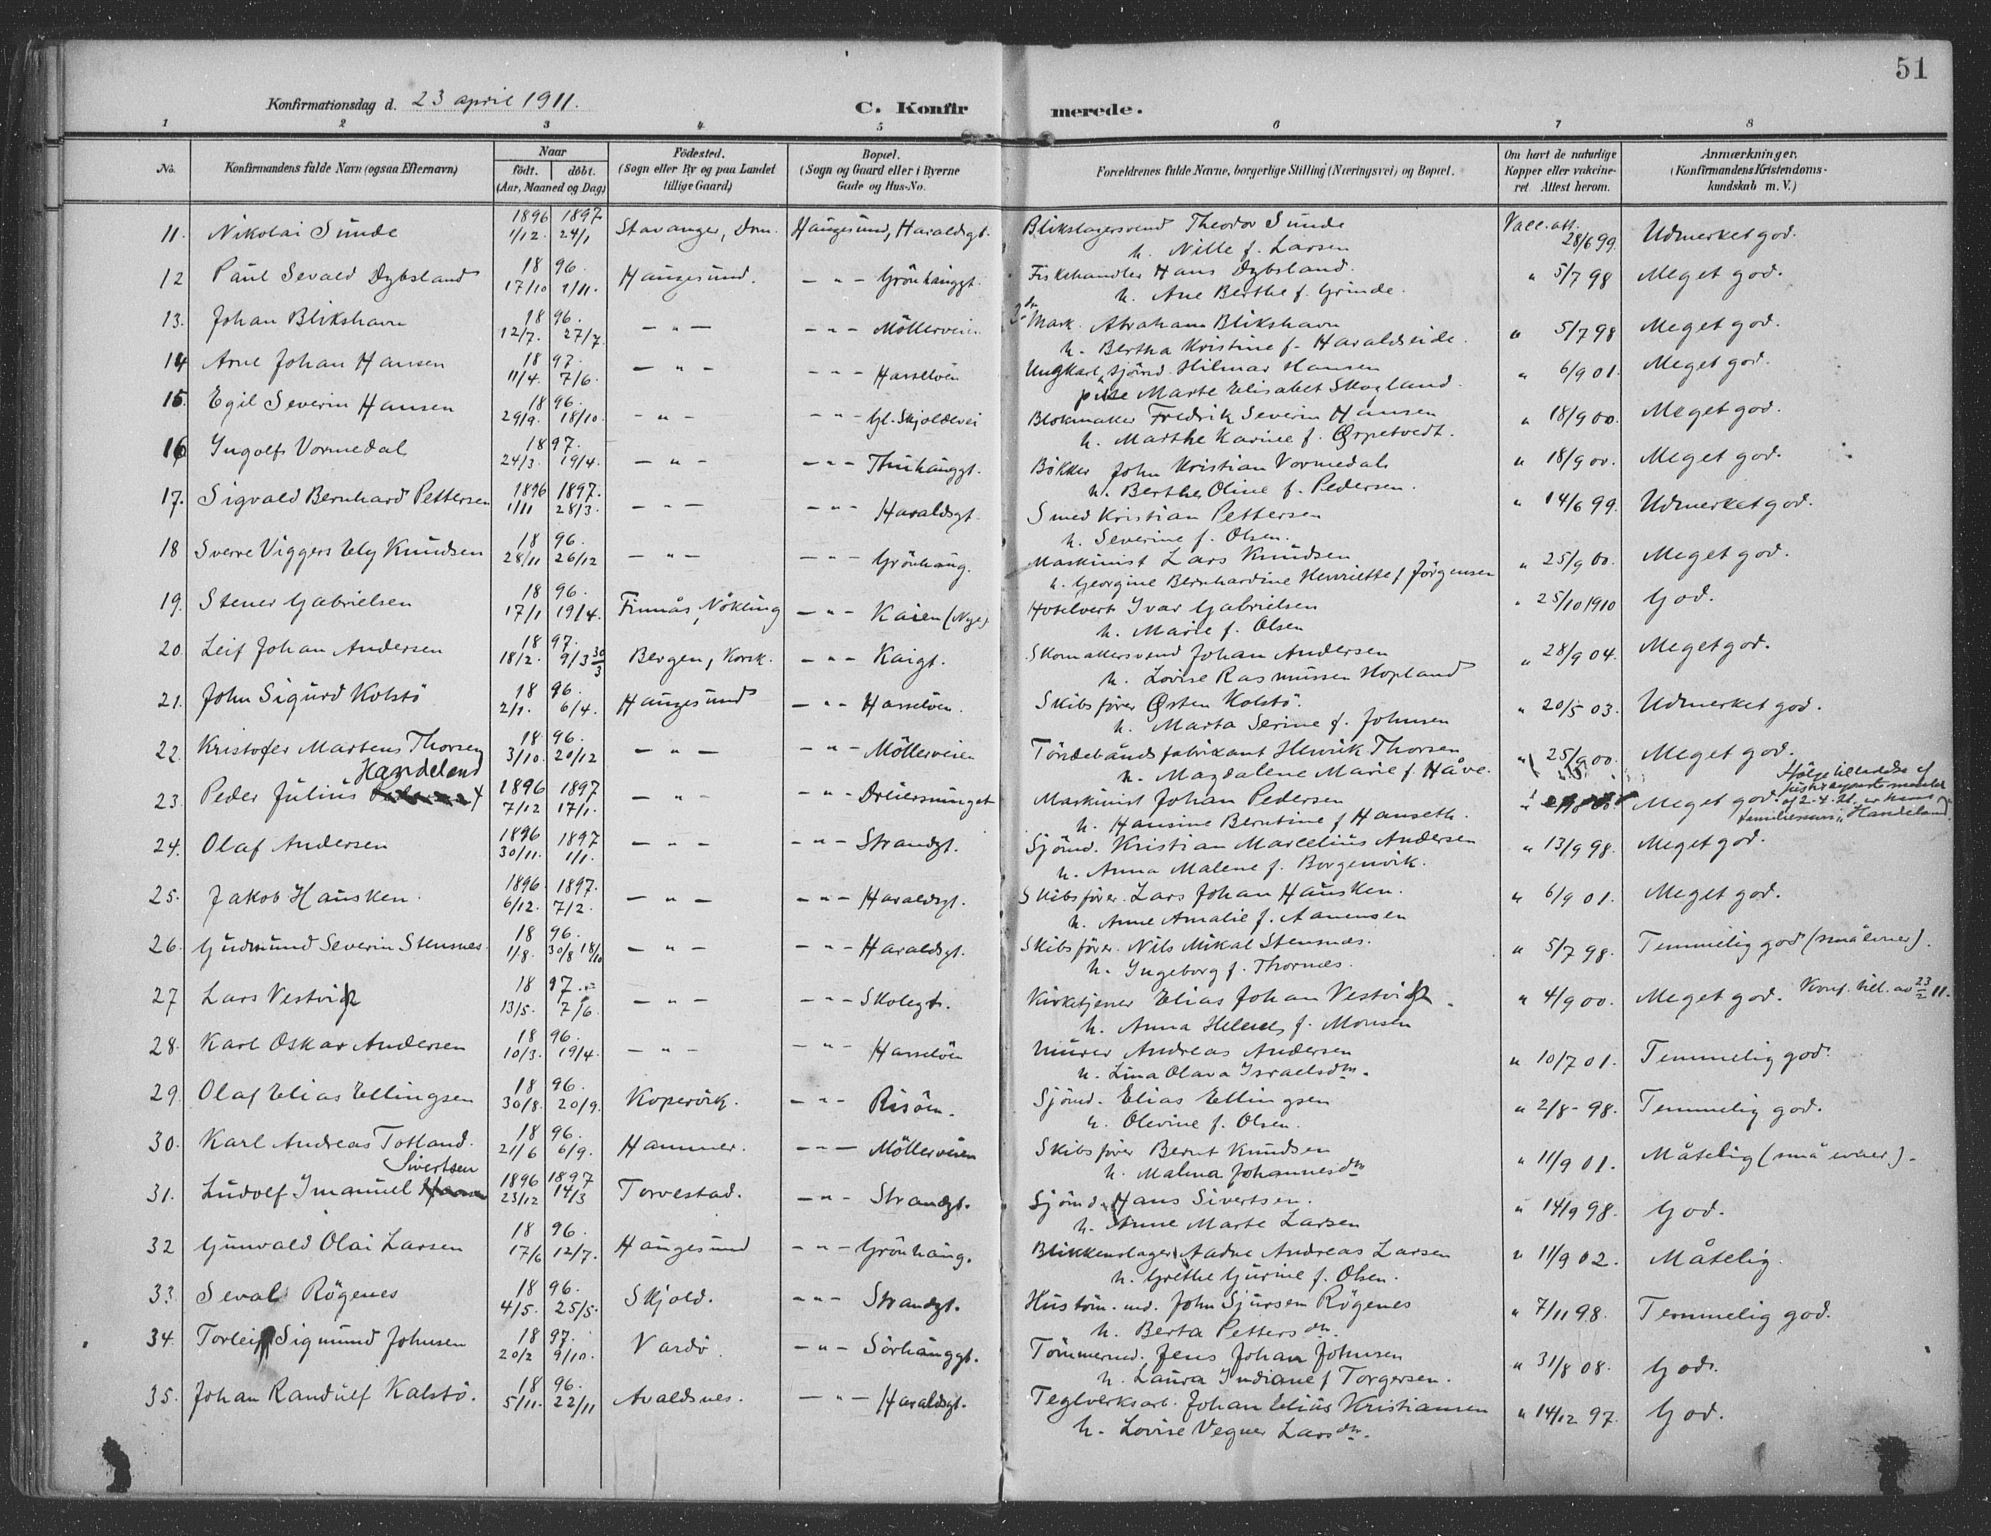 51
Konfirmationsdag d. 23 april 1911.
C. Konfirmerede.
1 2 3 4 5 6 7 8
No. Konfirmandens fulde Navn (ogsaa Efternavn) Naar født. døbt. (Aar, Maaned og Dag) Fødested. (Sogn eller By og paa Landet tillige Gaard) Bopæl. (Sogn og Gaard eller i Byerne Gade og Hus-No. Forældrenes fulde Navne, borgerlige Stilling (Næringsvei) og Bopæl. Om havt de naturlige Kopper eller vakcineret Attest herom. Anmærkninger. (Konfirmandens Kristendomskundskab m. V.)
11. Nikolai Sunde 1896 1/12. 1897 24/1 Stavanger, Dom. Haugesund, Haraldsgt. Blikslagersvend Theodor Sunde Vacc. att. 28/6 99. Udmerket god.
h. Nille f. Larsen
12 Paul Sevald Dybsland 1896. 17/10 1/11. Haugesund. — " — Grönhauggt. Fiskehandler Hans Dybsland. " 5/7 98 Meget god.
h. Ane Berthe f. Grinde.
13. Johan Blikshavn 1896. 12/7. 27/7 — " — — " — Möllerveien Mask. Abraham Blikshavn " 5/7 98 Meget god.
h. Bertha Kristine f. Haraldseide.
14 Arne Johan Hansen 1897. 11/4. 7/6. — " — — " — Hasselöen Ungkarl, sjömd. Hilmar Hansen " 6/9 01. Meget god.
pike Marte Elisabet Skogland.
15. Egil Severin Hansen 1896. 29/9. 18/10. — " — — " — Gl. Skjoldevei Blokmaker Fredrik Severin Hansen " 18/9 00. Meget god.
h. Marthe Karine f. Ørpetvedt.
16 Ingolf Vormedal 1897. 24/3. 19/4. — " — — " — Thuhauggt. Bøkker John Kristian Vormedal " 18/9 00. Meget god.
h. Berthe Oline f. Pedersen.
17. Sigvald Bernhard Pettersen 1896 1/11 1897. 28/3. — " — — " — Haraldsgt. Smed Kristian Pettersen " 14/6 99. Udmerket god.
h. Severine f. Olsen.
18 Sverre Viggers Ely Knudsen 1896. 28/11 26/12 — " — — " — Grönhaug. Maskinist Lars Knudsen " 25/9 00. Meget god.
h. Georgine Bernhardine Henriette f. Jørgensen
19. Stener Gabrielsen 1896. 17/1 19/4. Finnås, Nökling — " — Kaien (Nye) Hotelvert Ivar Gabrielsen " 25/10 1910 God.
h. Marie f. Olsen
20. Leif Johan Andersen 1897. 18/2. 9/3 30/3 Bergen, Korsk. — " — Kaigt. Skomakersvend Johan Andersen " 28/9 04. Meget god.
h. Lovise Rasmussen Hopland
21. John Sigurd Kolstö 1896. 2/1. 6/4. Haugesund — " — Hasselöen. Skibsfører Østen Kolstö. " 20/5 03. Udmerket god.
h. Marta Serine f. Johnsen
22. Kristofer Martens Thorsen 1896. 3/10. 20/12 — " — — " — Möllerveien Töndebåndsfabrikant Henrik Thorsen " 25/9 00. Meget god.
h. Magdalene Marie f. Håve.
Handeland
23. Peder Julius 1896 7/12 1897 17/1. — " — — " — Dreiersmuget Maskinist Johan Pedersen Meget god. Ifølge tilladelse af justisdepartementet af 2.-4.-21. familienavn "Handeland".
h. Hansine Berntine f. Hanseth.
24. Olaf Andersen 1896 30/11. 1897 1/1. — " — — " — Strandgt. Sjömd. Kristian Marcelius Andersen " 13/9 98. Meget god.
h. Anna Malene f. Borgenvik.
25. Jakob Hausken. 1896 6/12. 1897. 7/2. — " — — " — Haraldsgt. Skibsfører. Lars Johan Hausken. " 6/9 01. Meget god.
h. Anne Amalie f. Aanensen
26. Gudmund Severin Stensnes. 1896. 1/8. 30/8 18/10 — " — — " — Haraldsgt. Skibsfører. Nils Mikal Stensnæs. " 5/7 98. Temmelig god (små evner).
h. Ingeborg f. Thornes.
27 Lars Vestvik 1897. 13/5. 7/6. — " — — " — Skolegt. Kirketjener Elias Johan Vestvik " 4/9 00. Meget god. Konf. till. av 23/2 11.
h. Anna Helene f. Monsen
28. Karl Oskar Andersen 1896. 10/3. 19/4. — " — — " — Hasselöen Murer Andreas Andersen " 10/7 01. Temmelig god.
h. Lina Olava Israelsdtr.
29. Olaf Elias Ellingsen 1896. 30/8. 20/9. Kopervik. — " — Risöen. Sjömd. Elias Ellingsen " 2/8 - 98. Temmelig god.
h. Olivine f. Olsen.
30. Karl Andreas Totland. 1896. 21/6 6/9. Hammer. — " — Möllerveien Skibsfører Bernt Knudsen " 11/9 01. Måtelig (små evner).
h. Malena Johannesdtr
Sivertsen
31. Ludolf Imanuel 1896 23/12 1897 14/3 Torvestad. — " — Strandgt. Sjömd. Hans Sivertsen. " 14/9 98. God.
h. Anne Marte Larsen
32 Gunvald Olai Larsen 1896. 17/6 12/7. Haugesund — " — Grönhaug. Blikkenslager Aadne Andreas Larsen " 11/9 02. Måtelig.
h. Grethe Gurine f. Olsen.
33. Seval Rögenes 1896. 4/5. 25/5. Skjold. — " — Strandgt. Hustöm.-md. John Sjursen Rögenes " 7/11 98. Temmelig god.
h. Berta Pettersdtr.
34. Torleif Sigmund Johnsen 1897. 20/2 9/10. Vardö. — " — Sörhauggt. Tömmermd. Jens Johan Johnsen " 31/8 08. God.
h. Laura Indiane f Torgersen.
35. Johan Randulf Kalstö. 1896. 5/11. 22/11 Avaldsnes. — " — Haraldsgt. Teglverksarb. Johan Elius Kristiansen " 14/12 97. God.
h. Lovise Vegner Larsdtr.